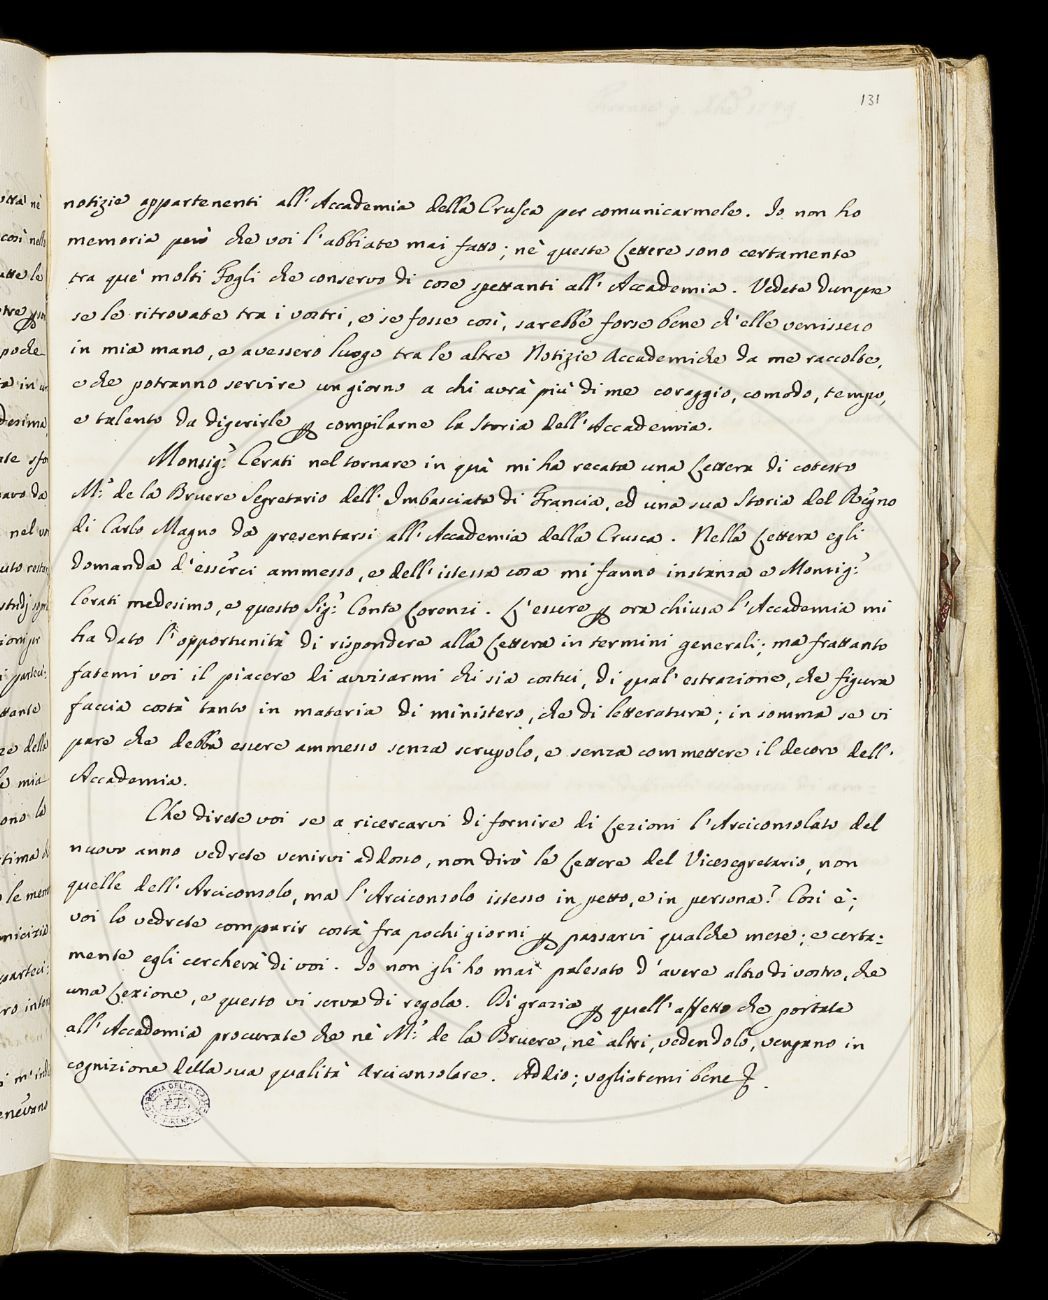 131
notizie appartenenti all'Accademia della Crusca per comunicarmele. Io non ho
memoria però che voi l'abbiate mai fatto; nè queste Lettere sono certamente
tra que' molti Fogli che conservo di cose spettanti all'Accademia. Vedete dunque
se le ritrovate tra i vostri, e se fosse così, sarebbe forse bene ch'elle venissero
in mia mano, e avessero luogo tra le altre Notizie Accademiche da me raccolte,
e che potranno servire un giorno a chi avrà più di me coraggio, comodo, tempo,
e talento da digerirle p compilarne la Storia dell'Accademia.
Monsig.r Cerati nel tornare in quà mi ha recata una Lettera di cotesto
M.r de la Bruere Segretario dell'Imbasciata di Francia, ed una sua Storia del Regno
di Carlo Magno da presentarsi all'Accademia della Crusca. Nella Lettera egli
domanda d'esserci ammesso, e dell'istessa cosa mi fanno instanza e Monsig.r
Cerati medesimo, e questo Sig.r Conte Lorenzi. L'essere p ora chiusa l'Accademia mi
ha dato l'opportunità di rispondere alla Lettera in termini generali; ma frattanto
fatemi voi il piacere di avvisarmi chi sia costui, di qual'estrazione, che figura
faccia costà tanto in materia di ministero, che di letteratura; in somma se vi
pare che debba essere ammesso senza scrupolo, e senza commettere il decoro dell'
Accademia.
Che direte voi se a ricercarvi di fornire di Lezioni l'Arciconsolato del
nuovo anno vedrete venirvi addosso, non dirò le Lettere del Vicesegretario, non
quelle dell'Arciconsolo, ma l'Arciconsolo istesso in petto, e in persona? Così è;
voi lo vedrete comparir costà fra pochi giorni p passarvi qualche mese; e certa=
mente egli cercherà di voi. Io non gli ho mai palesato d'avere altro di vostro, che
una Lezione, e questo vi serva di regola. Di grazia p quell'affetto che portate
all'Accademia procurate che nè M.r de la Bruere, nè altri, vedendolo, vengano in
cognizione della sua qualità Arciconsolare. Addio; vogliatemi bene